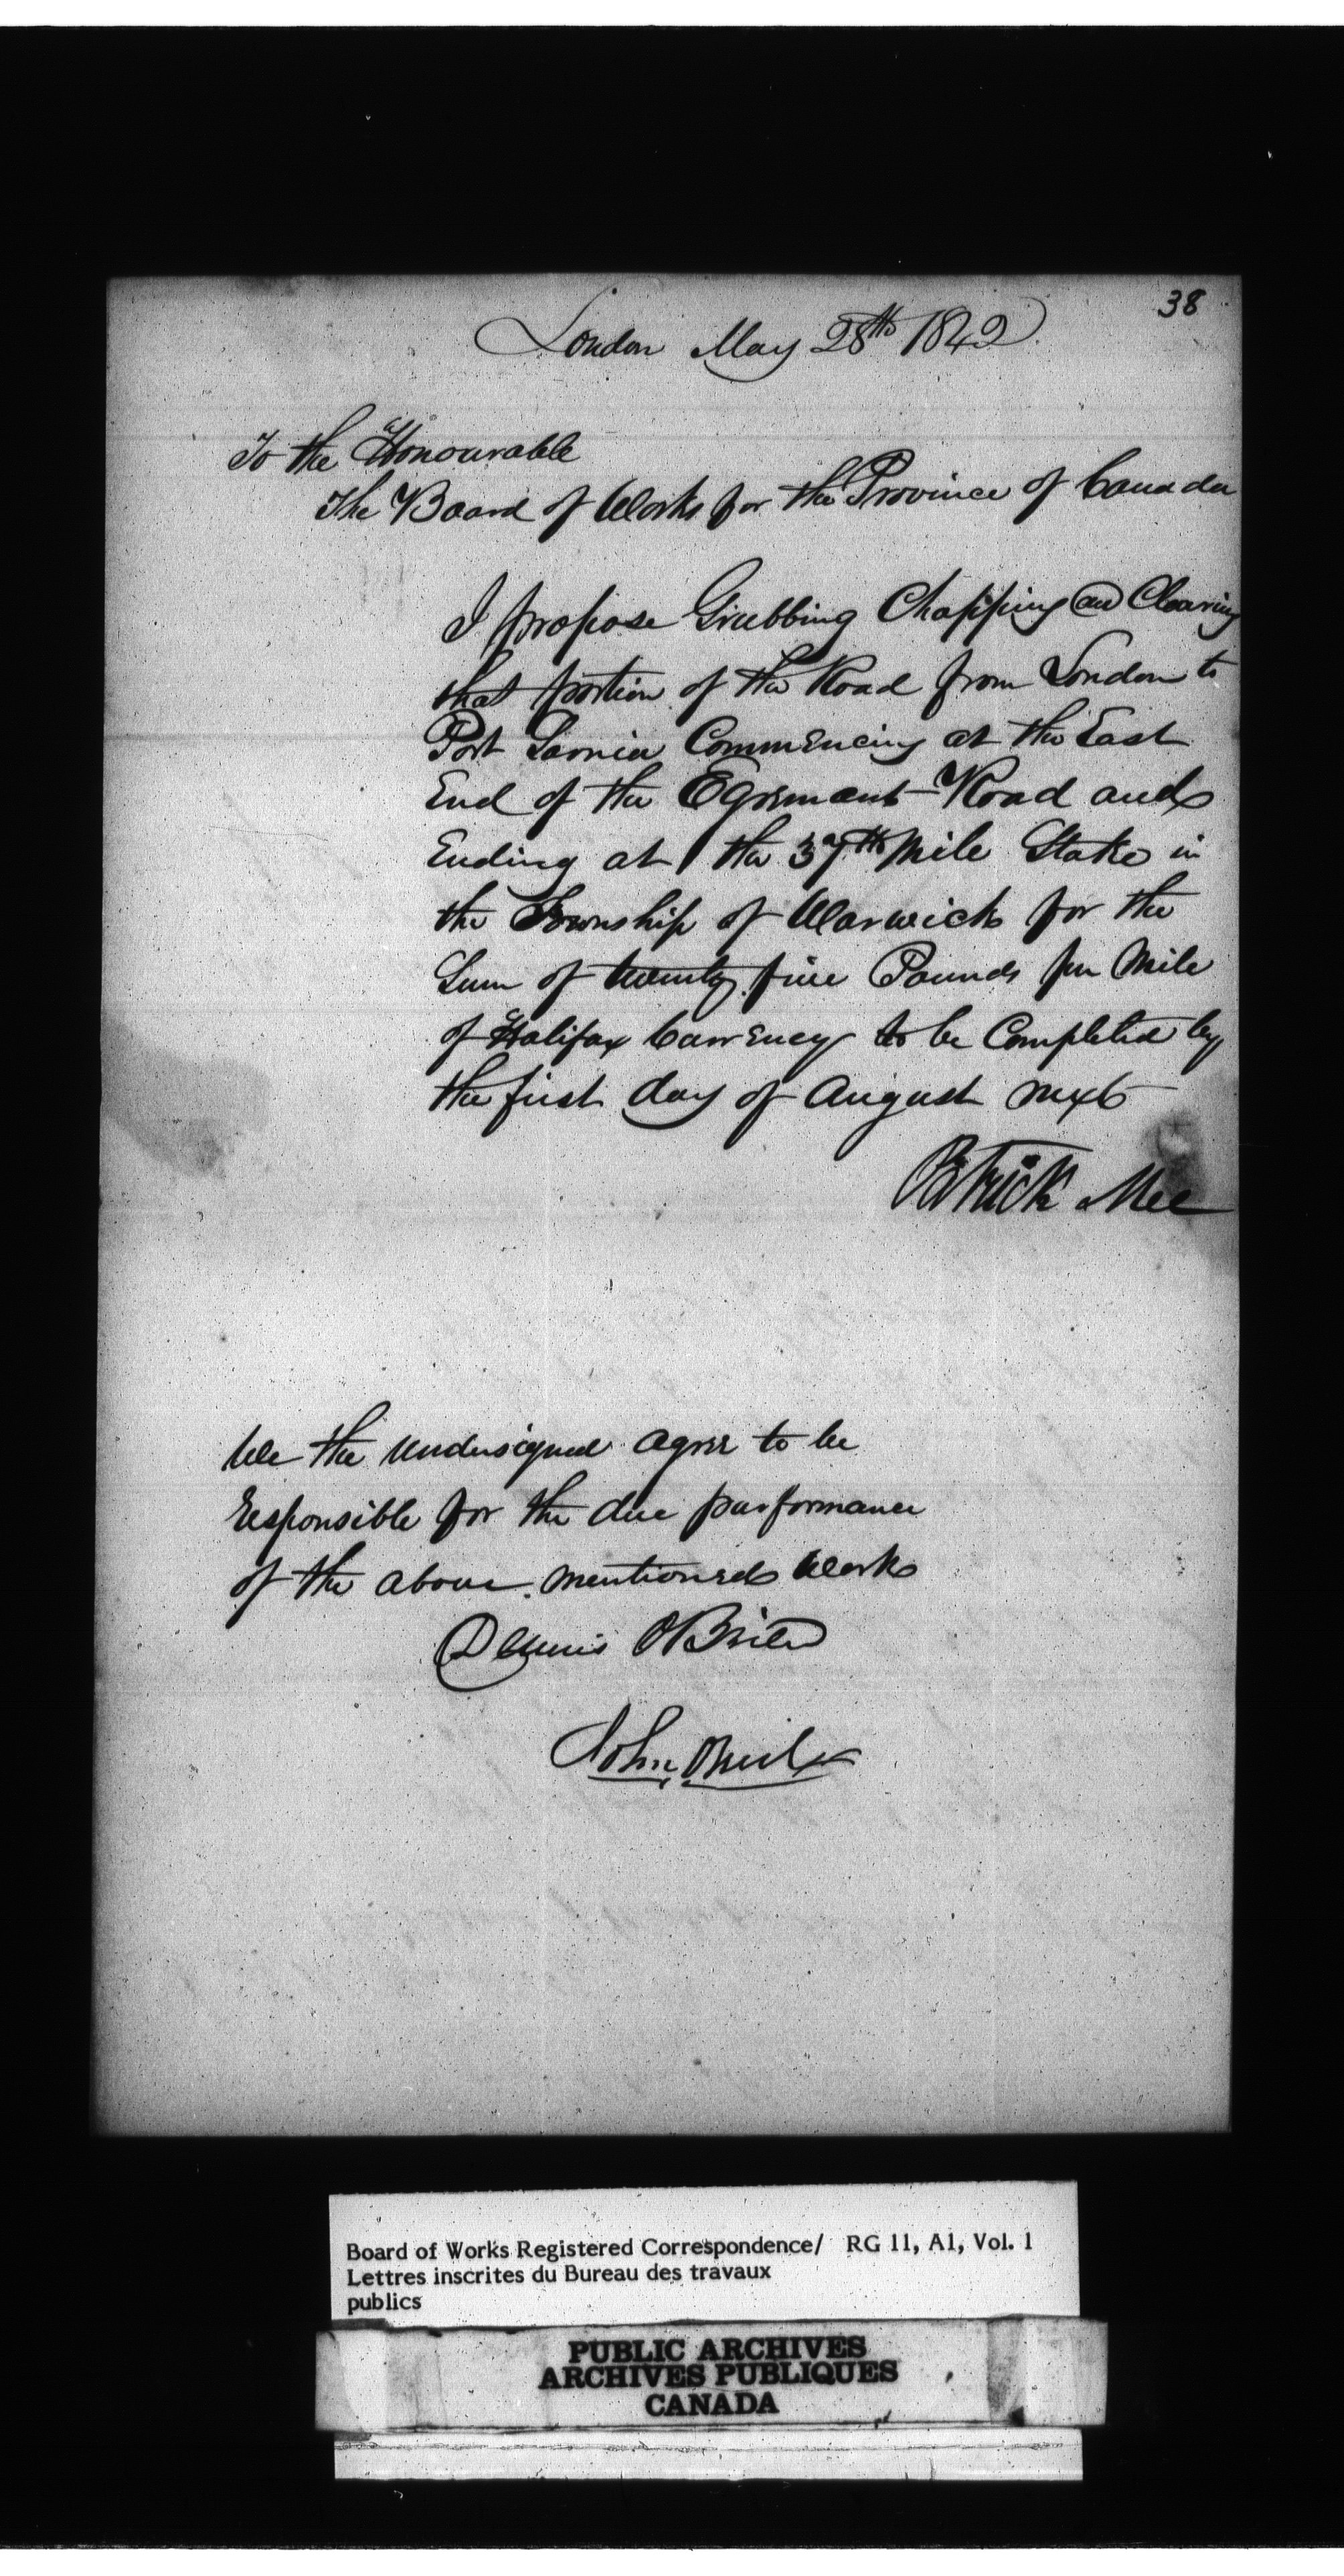 38
London May 28th 1842
To the Honourable
The Board of Works for the Province of Canada
I propose Grubbing Chopping and Clearing
that portion of the Road from London to
Port Sarnia Commencing at the East
End of the Egremont Road and
Ending at the 37th Mile Stake in
the Township of Warwick for the
Sum of twenty five Pounds per Mile
of Halifax Currency to be Completed by
the first day of August next
Patrick Mee
We the undersigned agree to be
responsible for the due performance
of the above mentioned Work
Dennis OBrien
John ONeil
Board of Works Registered Correspondence/ RG 11, A1, Vol. 1
Lettres inscrites du Bureau des travaux
publics
PUBLIC ARCHIVES
ARCHIVES PUBLIQUES
CANADA